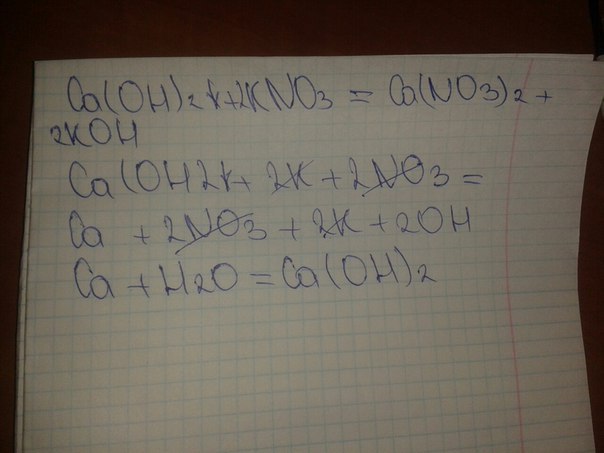 Ca(OH)2 + 2KNO3 = Ca(NO3)2 +
2KOH
Ca(OH2 + 2K + 2NO3 =
Ca + 2NO3 + 2K + 2OH
Ca + H2O = Ca(OH)2